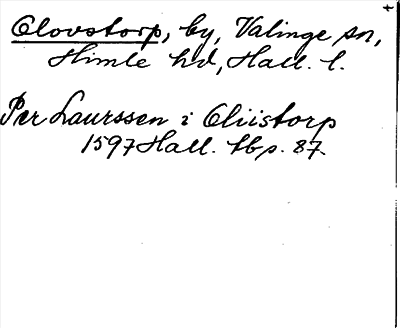 Clovstorp, by, Valinge sn,
Himle hd, Hall. l.
Per Laurssen i Cliistorp
1597 Hall. tb p. 87